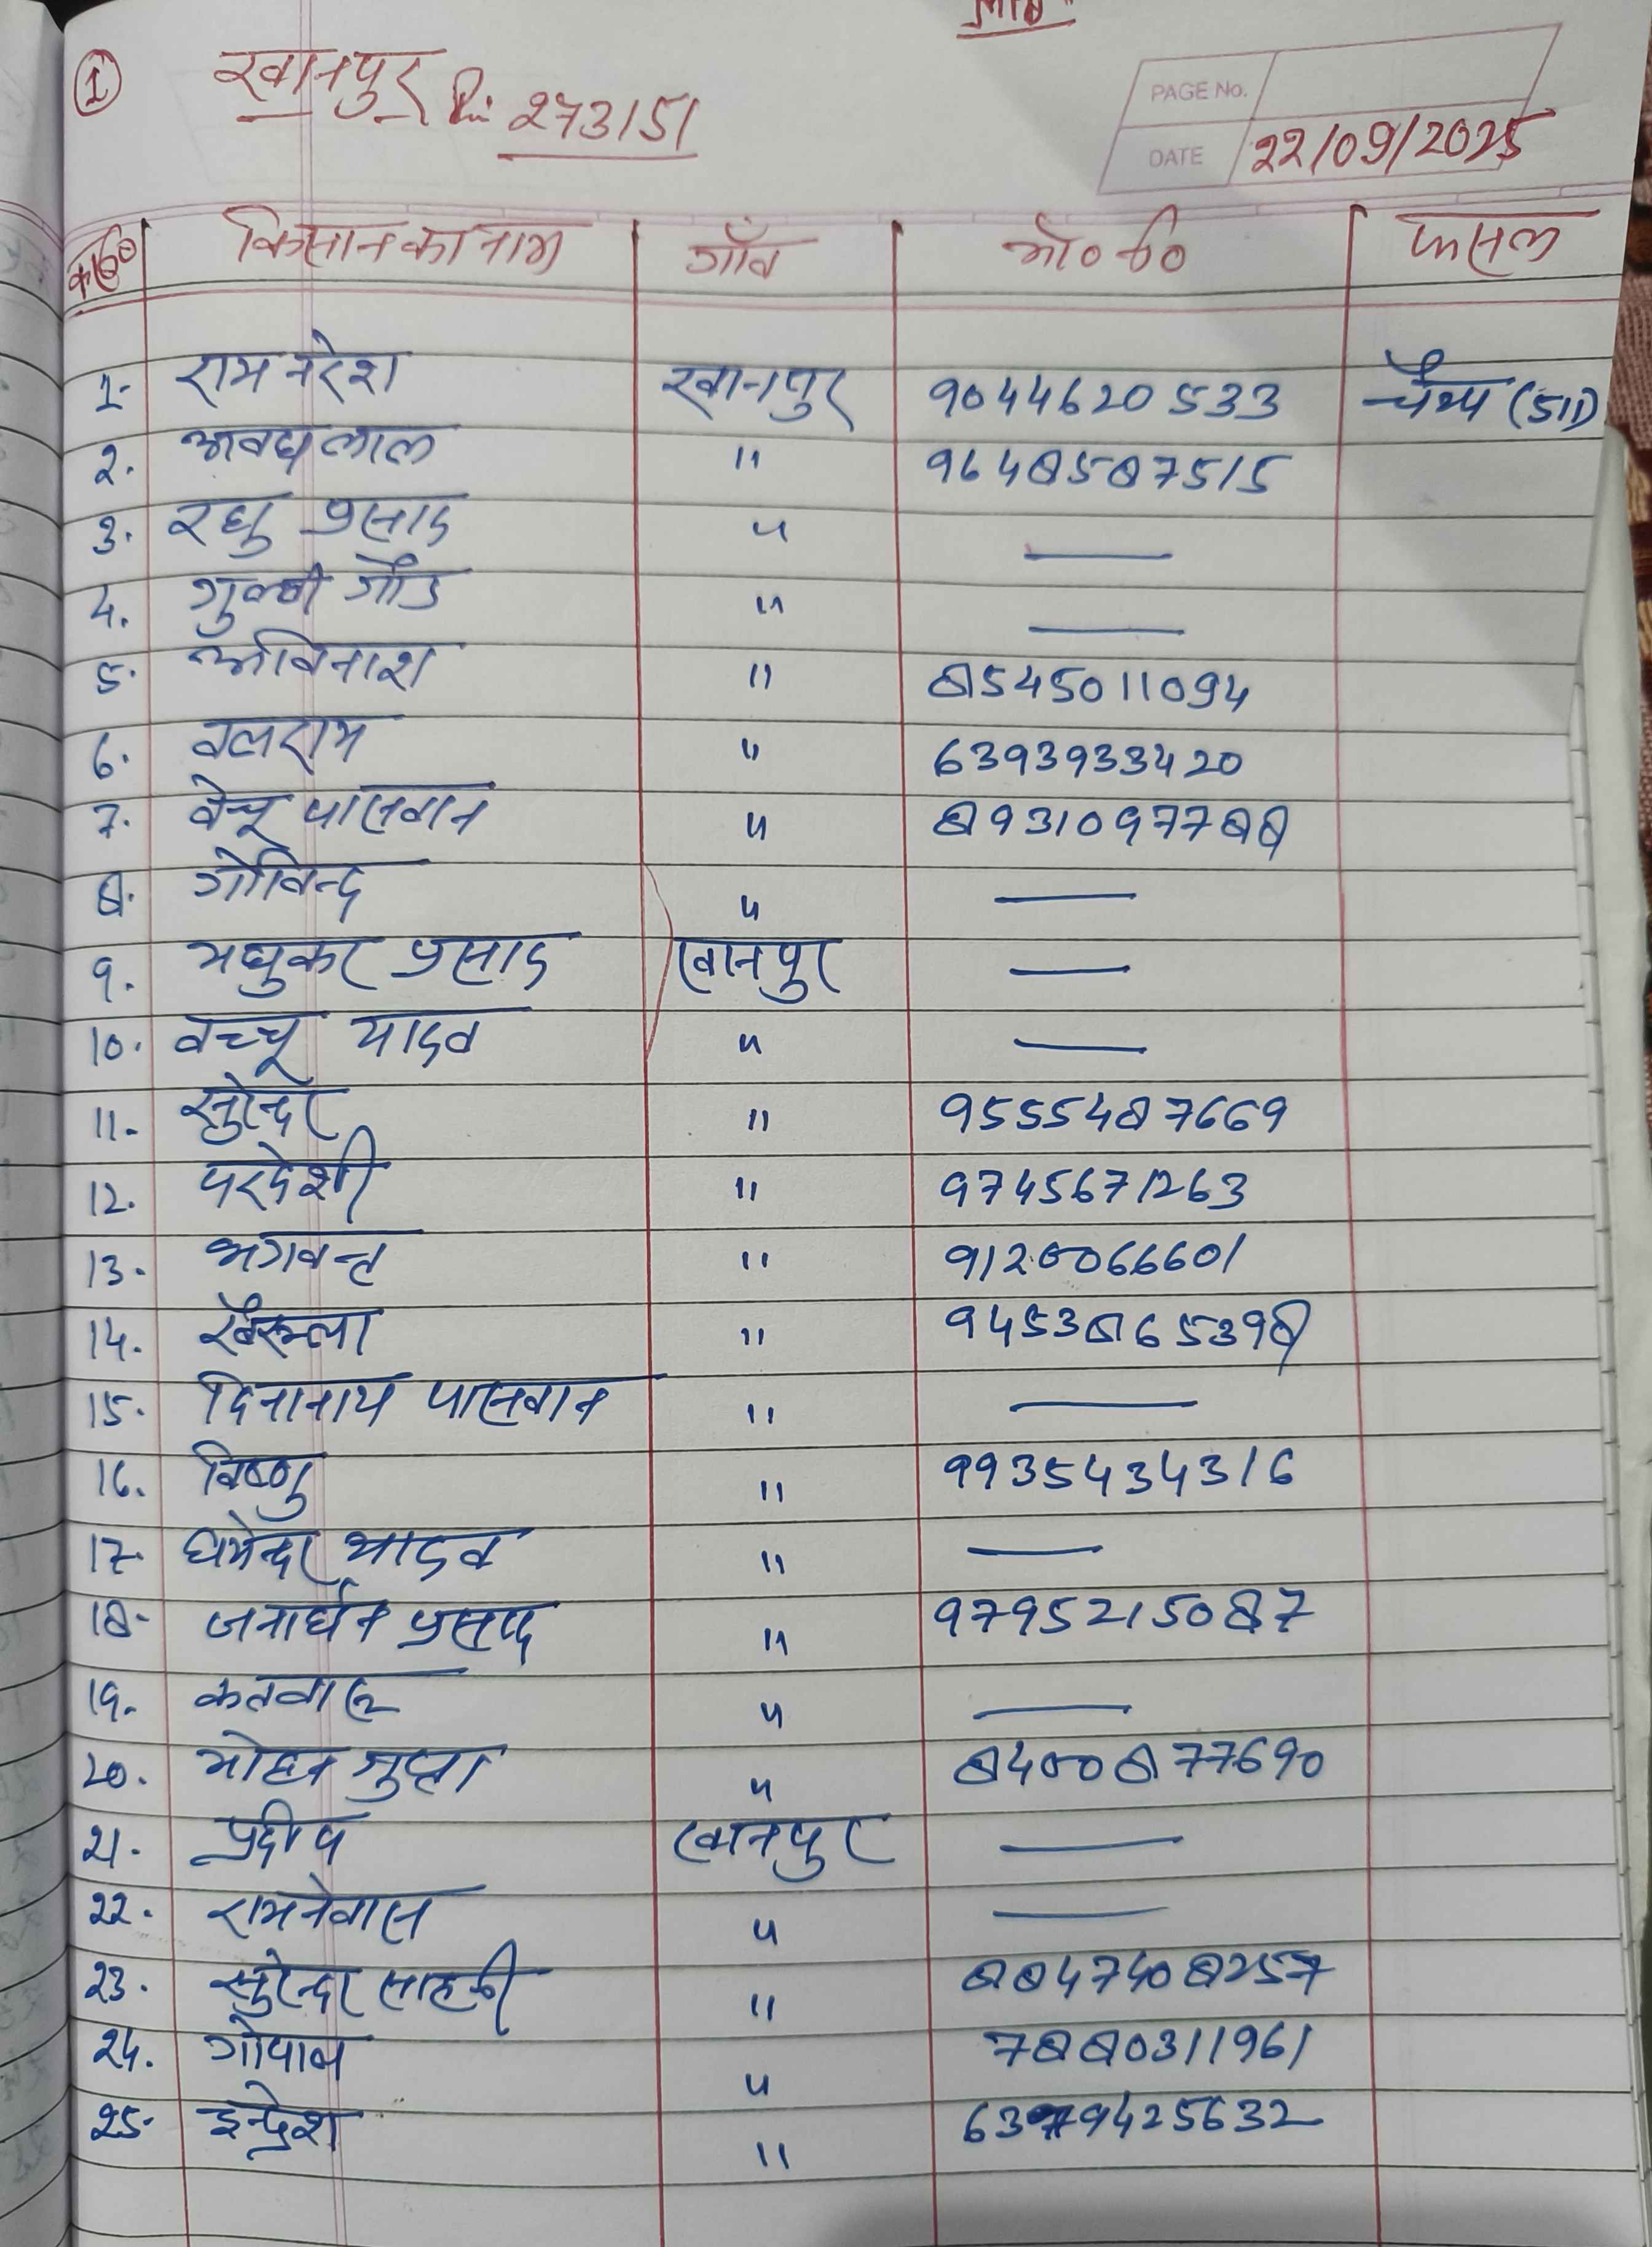 ① खानपुर Pin 273151
PAGE No.
DATE 22/09/2025
क्र०सं० किसान का नाम गाँव मो० नं० फसल
1- राम नरेश खानपुर 9044620533 चैम्प (511)
2. अवध लाल " 9648587515
3. रघु प्रसाद " —
4. गुल्ली गौड " —
5. अविनाश " 8545011094
6. बलराम " 6393933420
7. वेचू पासवान " 8931097788
8. गोविन्द " —
9. मधुकर प्रसाद खानपुर —
10. वच्चू यादव " —
11. सुरेन्दर " 9555487669
12. परदेशी " 9745671263
13. भगवन्त " 9120066601
14. खैरूल्ला " 9453865398
15. दिनानाथ पासवान " —
16. विष्णु " 9935434316
17- धर्मेन्दर यादव " —
18- जनार्धन प्रसाद " 9795215087
19. कतवारू " —
20. मोहन गुप्ता " 8400877690
21. प्रदीप खानपुर —
22. रामनेवास " —
23. सुरेन्दर साहनी " 8847408257
24. गोपाल " 7880311961
25. इन्द्रेश " 6379425632